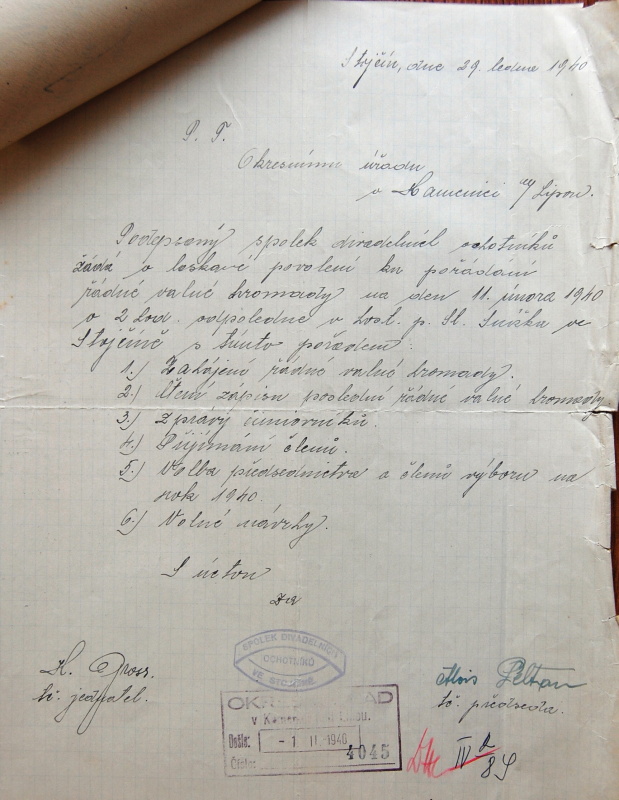 Stojčín, dne 29. ledna 1940
P. T.
Okresnímu úřadu
v Kamenici n/Lipou.
Podepsaný spolek divadelních ochotníků
žádá o laskavé povolení ku pořádání
řádné valné hromady na den 11. února 1940
o 2 hod. odpoledne v host. p. Sl. ve
Stojčíně s tímto pořadem:
1.) Zahájení řádné valné hromady.
2.) Čtení zápisu poslední řádné valné hromady
3.) Zprávy činovníků.
4.) Přijímání členů.
5.) Volba předsednictva a členů výboru na
rok 1940.
6.) Volné návrhy.
S úctou
za
SPOLEK DIVADELNÍCH
OCHOTNÍKŮ
VE STOJČÍNĚ
K. Gross.
t.č. jednatel.
Alois Peltan
t.č. předseda.
OKRESNÍ ÚŘAD
v Kamenici n. Lipou.
Došlo: - 1. II. 1940
Číslo: 4045
IV